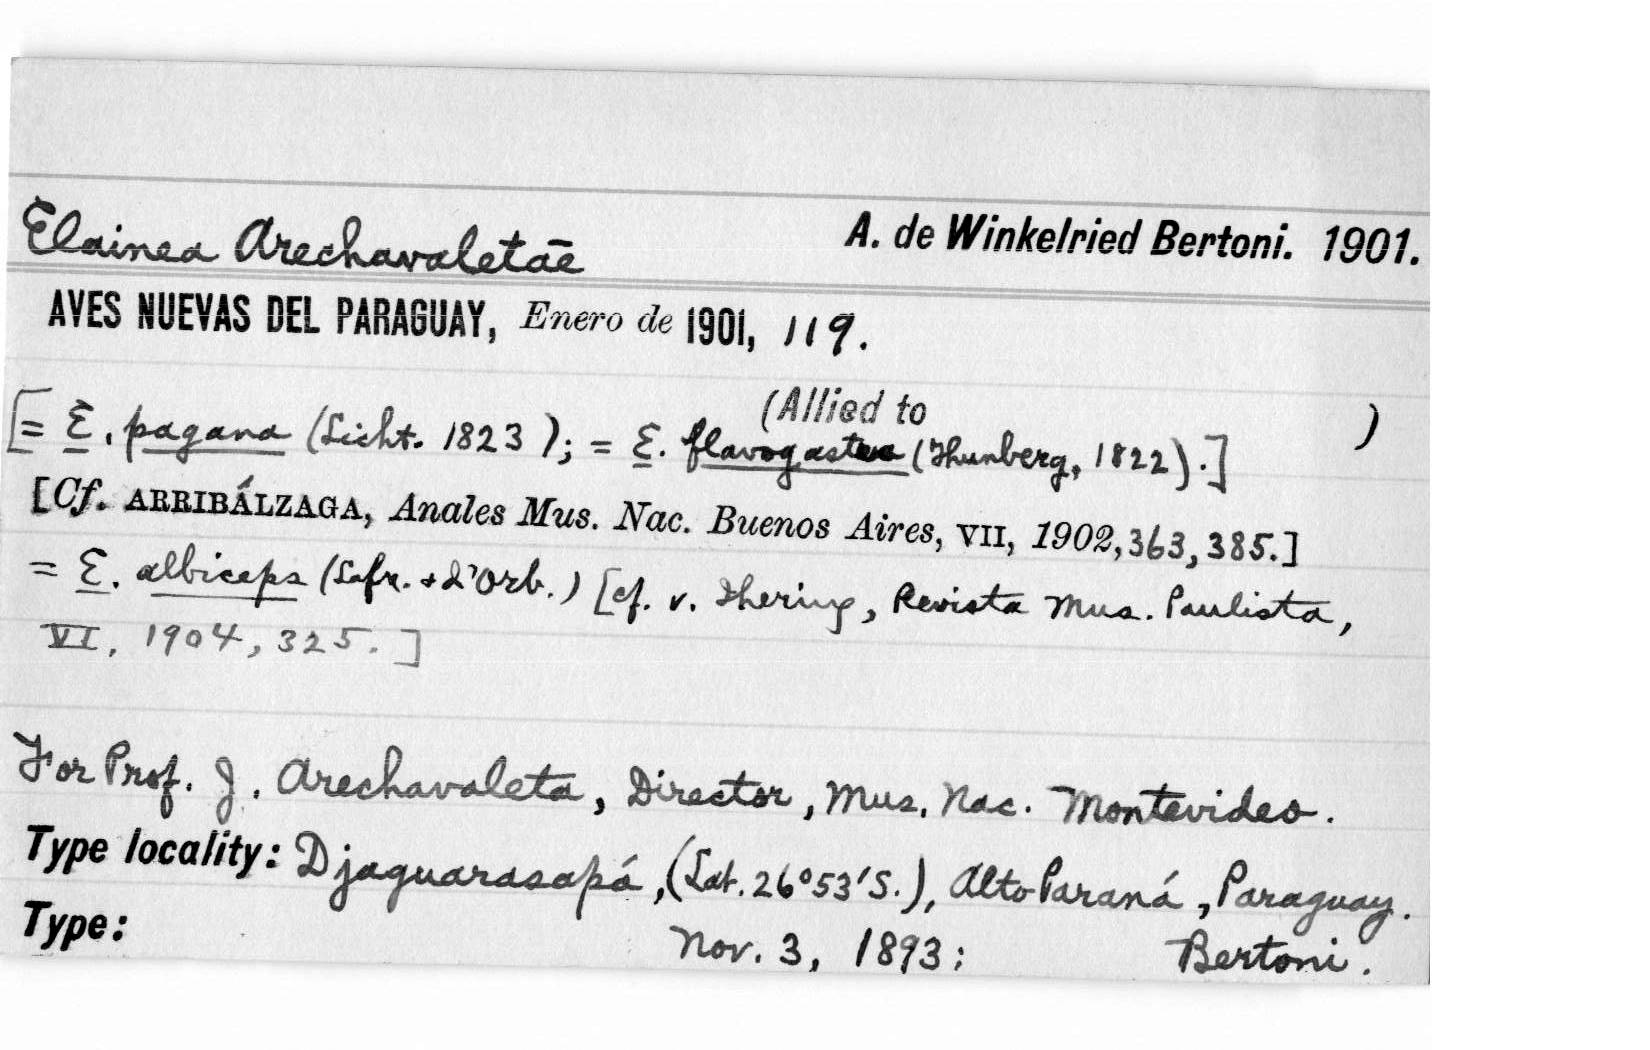 Elainea Arechavaletae A. de Winkelried Bertoni. 1901.
AVES NUEVAS DEL PARAGUAY, Enero de 1901, 119.
(Allied to )
[= E. pagana (Licht. 1823 ); = E. flavogastra (Thunberg, 1822).]
[Cf. ARRIBÁLZAGA, Anales Mus. Nac. Buenos Aires, VII, 1902, 363, 385.]
= E. albiceps (Lafr. + d'Orb.) [cf. v. Ihering, Revista Mus. Paulista,
VI, 1904, 325.]
For Prof. J. Arechavaleta, Director, Mus. Nac. Montevideo.
Type locality: Djaguarasapá, (Lat. 26°53'S.), Alto Paraná, Paraguay.
Type: Nov. 3, 1893; Bertoni.